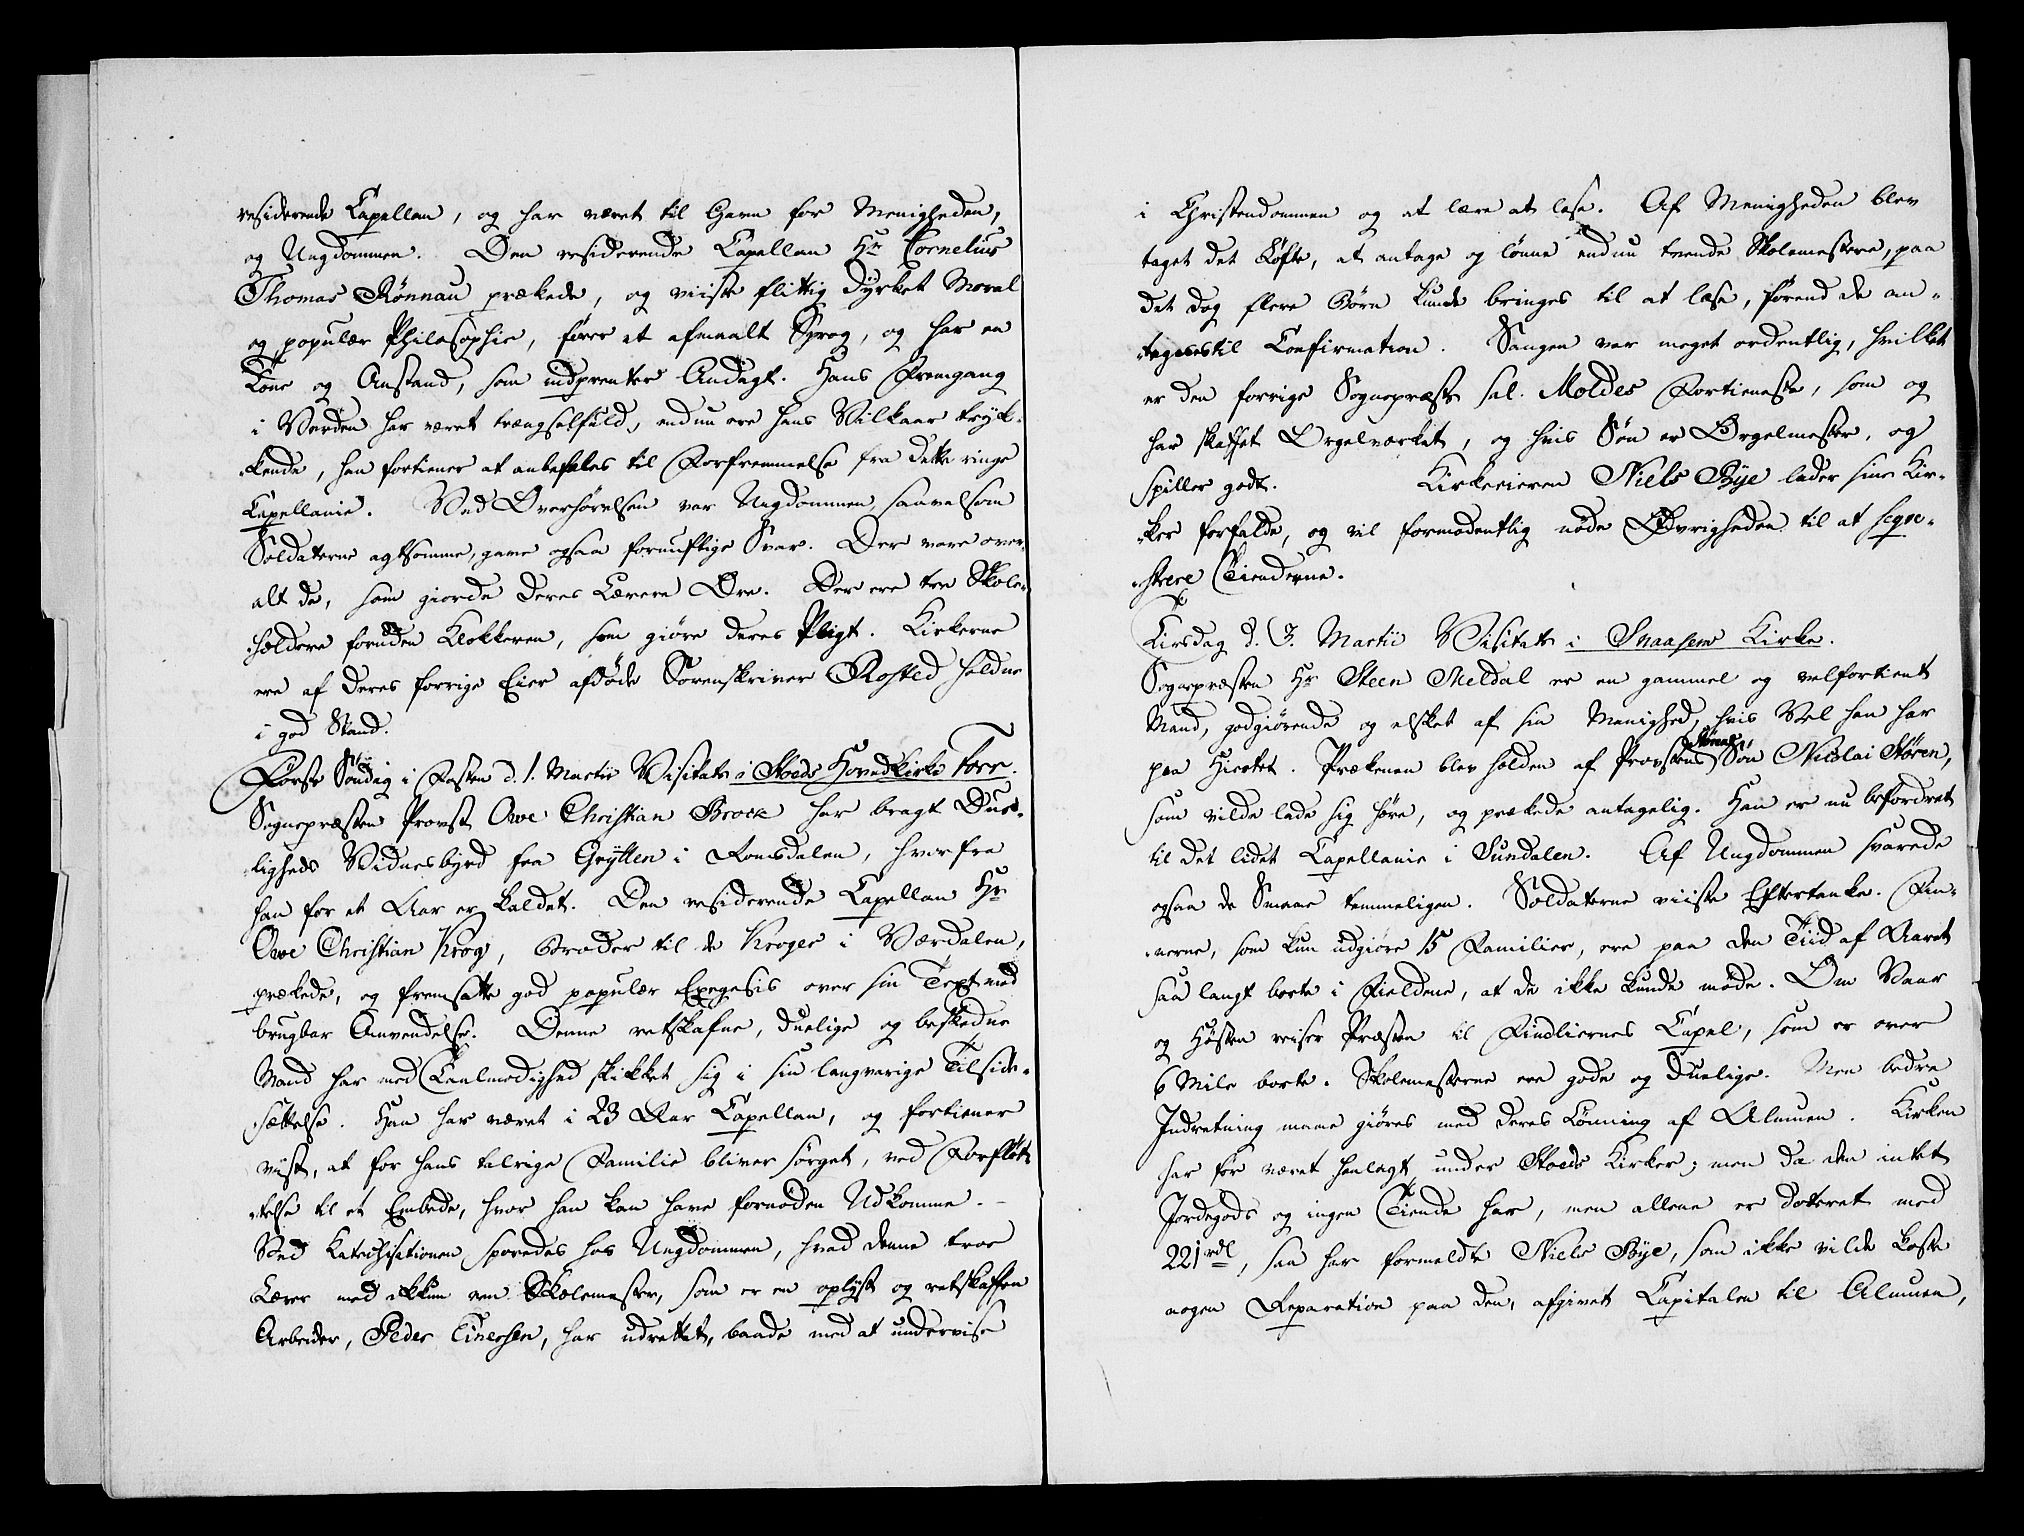 residerende Capellan, og har været til Gavn for Menigheden,
og Ungdommen. Den residerende Capellan Hr Cornelius
Thomas Rönnau prækede, og viiste flittig dyrket Moral
og populær Philosophie, fører et afmaalt Sprog, og har en
Tone og Anstand, som indprenter Andagt. Hans Fremgang
i Verden har været trængselfuld, endnu ere hans Vilkaar tryk-
kende, han fortiener at anbefales til Forfremmelse fra dette ringe
Capellanie. Ved Overhørelsen var Ungdommen, saavelsom
Soldaterne agtsomme, gave ogsaa fornuftige Svar. Der vare over-
alt de, som giorde deres Lærere Ære. Der ere tre Skole-
holdere foruden Klokkeren, som giøre deres Pligt. Kirkerne
ere af deres forrige Eier afdøde Sorenskriver Rosted holdne
i god Stand.
Første Søndag i Fasten d. 1. Martii Visitats i Stods Hovedkirke For.
Sognepræsten Provst Owe Christian Brock har bragt Due-
ligheds Vidnesbyrd fra Grytten i Romsdalen, hvorfra
han for et Aar er kaldet. Den residerende Capellan Hr
Owe Christian Krog, Broder til de Kroger i Værdalen,
prækede, og fremsatte god populær Exegesis over sin Text med
brugbar Anvendelse. Denne retskafne, duelige og beskedne
Mand har med Taalmodighed skikket sig i sin langvarige Tilside-
sættelse. Han har været i 23 Aar Capellan, og fortiener
vist, at for hans talrige Familie bliver sørget, ved Forflyt-
telse til et Embede, hvor han kan have fornøden Udkomme. -
Ved Katechisationen sporedes hos Ungdommen, hvad denne troe
Lærer med ikkun een Skolemester, som er en oplyst og retskaffen
Arbeider, Peder Einersen, har udrettet, baade med at undervise
i Christendommen og at lære at læse. Af Menigheden blev
taget det Løfte, at antage og lønne endnu tvende Skolemestere, paa
det dog flere Børn kunde bringes til at læse, førend de an-
tages til Confirmation. Sangen var meget ordentlig, hvilket
er den forrige Sognepræst sal. Moldes Fortieneste, som og
har skaffet Orgelværket, og hvis Søn er Orgelmester, og
spiller godt. Kirkeeieren Niels Bye lader sine Kir-
ker forfalde, og vil formodentlig nøde Øvrigheden til at seqve-
strere Tienderne.
Tirsdag d. 3. Martii Visitats i Snaasens Kirke.
Sognepræsten Hr Steen Meldal er en gammel og velfortient
Mand, godgiørende og elsket af sin Menighed, hvis Vel han har
paa Hiertet. Prækenen blev holden af Provstens Størens Søn Nicolai Støren,
som vilde lade sig høre, og prækede antagelig. Han er nu befordret
til det lidet Capellanie i Sundalen. Af Ungdommen svarede
ogsaa de Smaae temmeligen. Soldaterne viiste Eftertanke. Fin-
nerne, som kun udgiøre 15 Familier, ere paa den Tiid af Aaret
saa langt borte i Fieldene, at de ikke kunde møde. Om Vaar
og Høsten reiser Præsten til Findliernes Capel, som er over
6 Mile borte. Skolemesterne ere gode og duelige. Men bedre
Indretning maae giøres med deres Lønning af Almuen. Kirken
har før været henlagt under Stods Kirker; men da den intet
Jordegods og ingen Tiende har, men allene er doteret med
221 rdl, saa har formeldte Niels Bye, som ikke vilde koste
nogen Reparation paa den, afgivet Capitalen til Almuen,